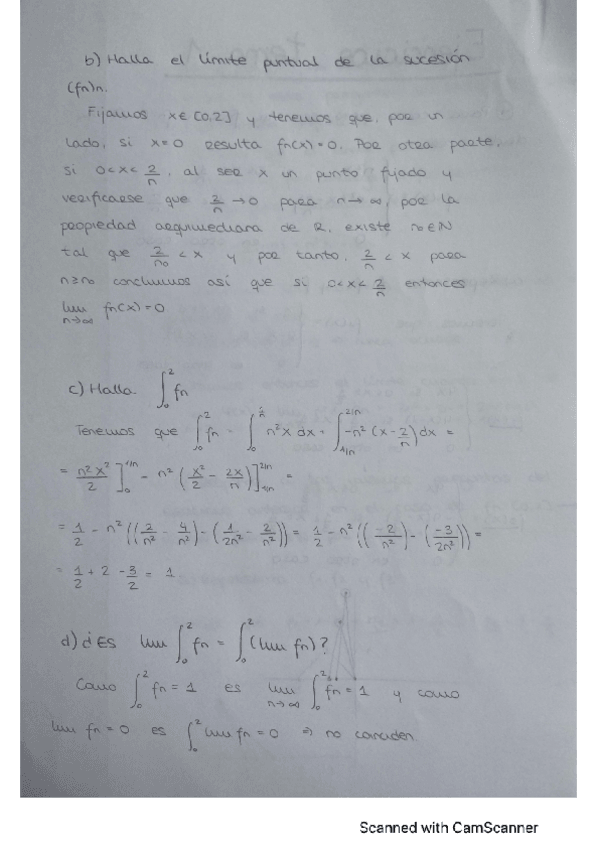 b) Halla el límite puntual de la sucesión
(fn)n.
Fijamos x∈[0,2] y tenemos que, por un
lado, si x=0 resulta fn(x)=0. Por otra parte,
si 0<x<2/n, al ser x un punto fijado y
verificarse que 2/n→0 para n→∞, por la
propiedad arquimediana de R, existe n₀∈N
tal que 2/n₀<x y por tanto, 2/n<x para
n≥n₀ concluimos así que si 0<x<2/n entonces
lim n→∞ fn(x)=0
c) Halla ∫₀² fn
Tenemos que ∫₀² fn = ∫₀^(1/n) n²x dx + ∫_(1/n)^(2/n) -n²(x-2/n)dx =
= n²x²/2]₀^(1/n) - n²(x²/2 - 2x/n)]_(1/n)^(2/n) =
= 1/2 - n²((2/n² - 4/n²)-(1/2n² - 2/n²)) = 1/2 - n²((-2/n²)-(-3/2n²)) =
= 1/2 + 2 - 3/2 = 1
d) ¿Es lim ∫₀² fn = ∫₀² (lim fn)?
Como ∫₀² fn = 1 es lim n→∞ ∫₀² fn = 1 y como
lim fn = 0 es ∫₀² lim fn = 0 ⇒ no coinciden.
Scanned with CamScanner